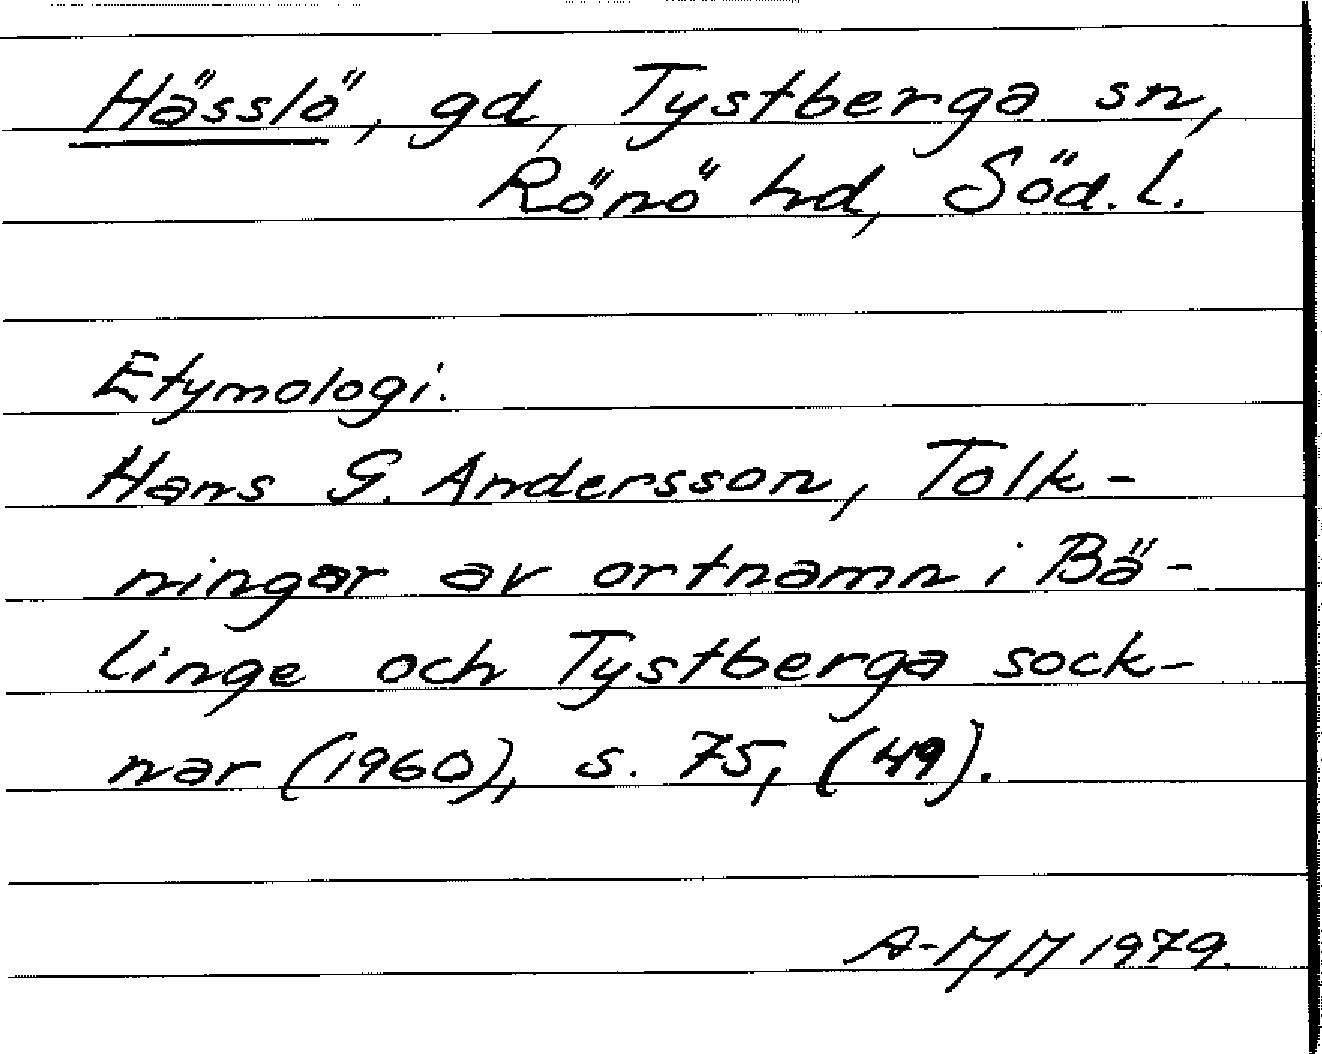 Hässlö, gd, Tystberga sn,
Rönö hd, Söd. l.
Etymologi.
Hans G. Andersson, Tolk-
ningar av ortnamn i Bä-
linge och Tystberga sock-
nar (1960), s. 75, (49).
A-MM 1979.